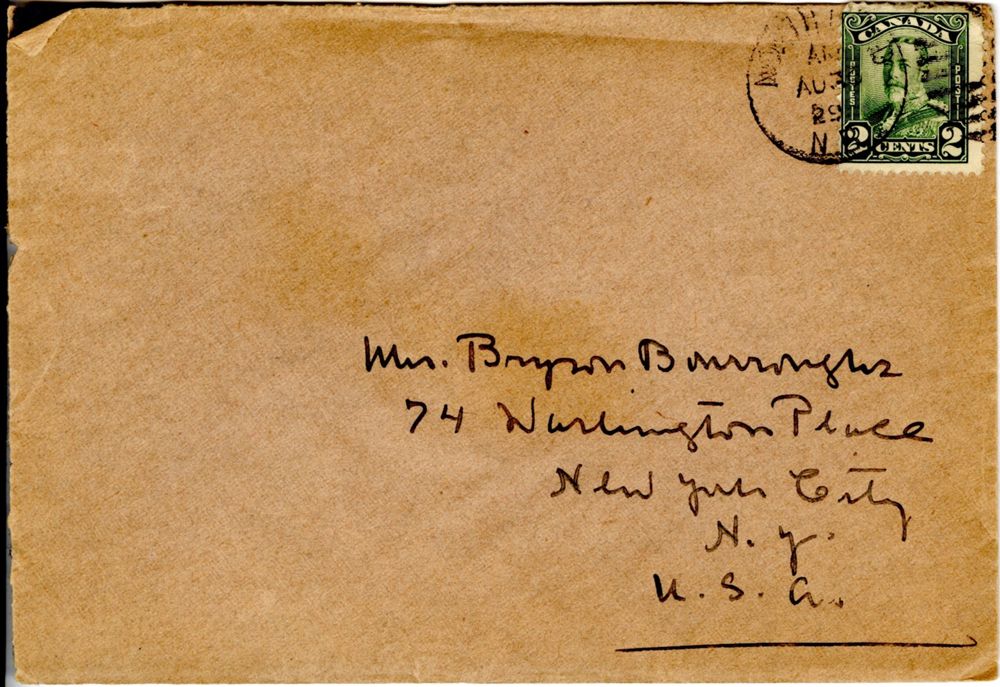 CANADA
POSTES
POST
2 CENTS 2
AM
AU
29
N.
Mrs. Bryson Burroughs
74 Washington Place
New York City
N. Y.
U. S. A.